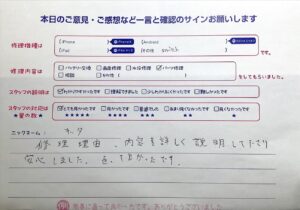 本日のご意見・ご感想など一言と確認のサインお願いします
修理機種は
iPhone
Android
iPad
switch
です。
修理内容は
バッテリー交換
画面修理
水没修理
パーツ修理
相談
その他（　　　）
をしてもらいました。
スタッフの説明は
わかりやすかったです
理解できました
少しわかりにくかったです
難しかったです
スタッフの対応は
★星の数★
とても良かったです
良かったです
普通でした
あまり良くなかったです
良くなかったです
ニックネーム：
修理理由、内容を詳しく説明してくださり
安心しました。
良かったです。
ありがとうございました